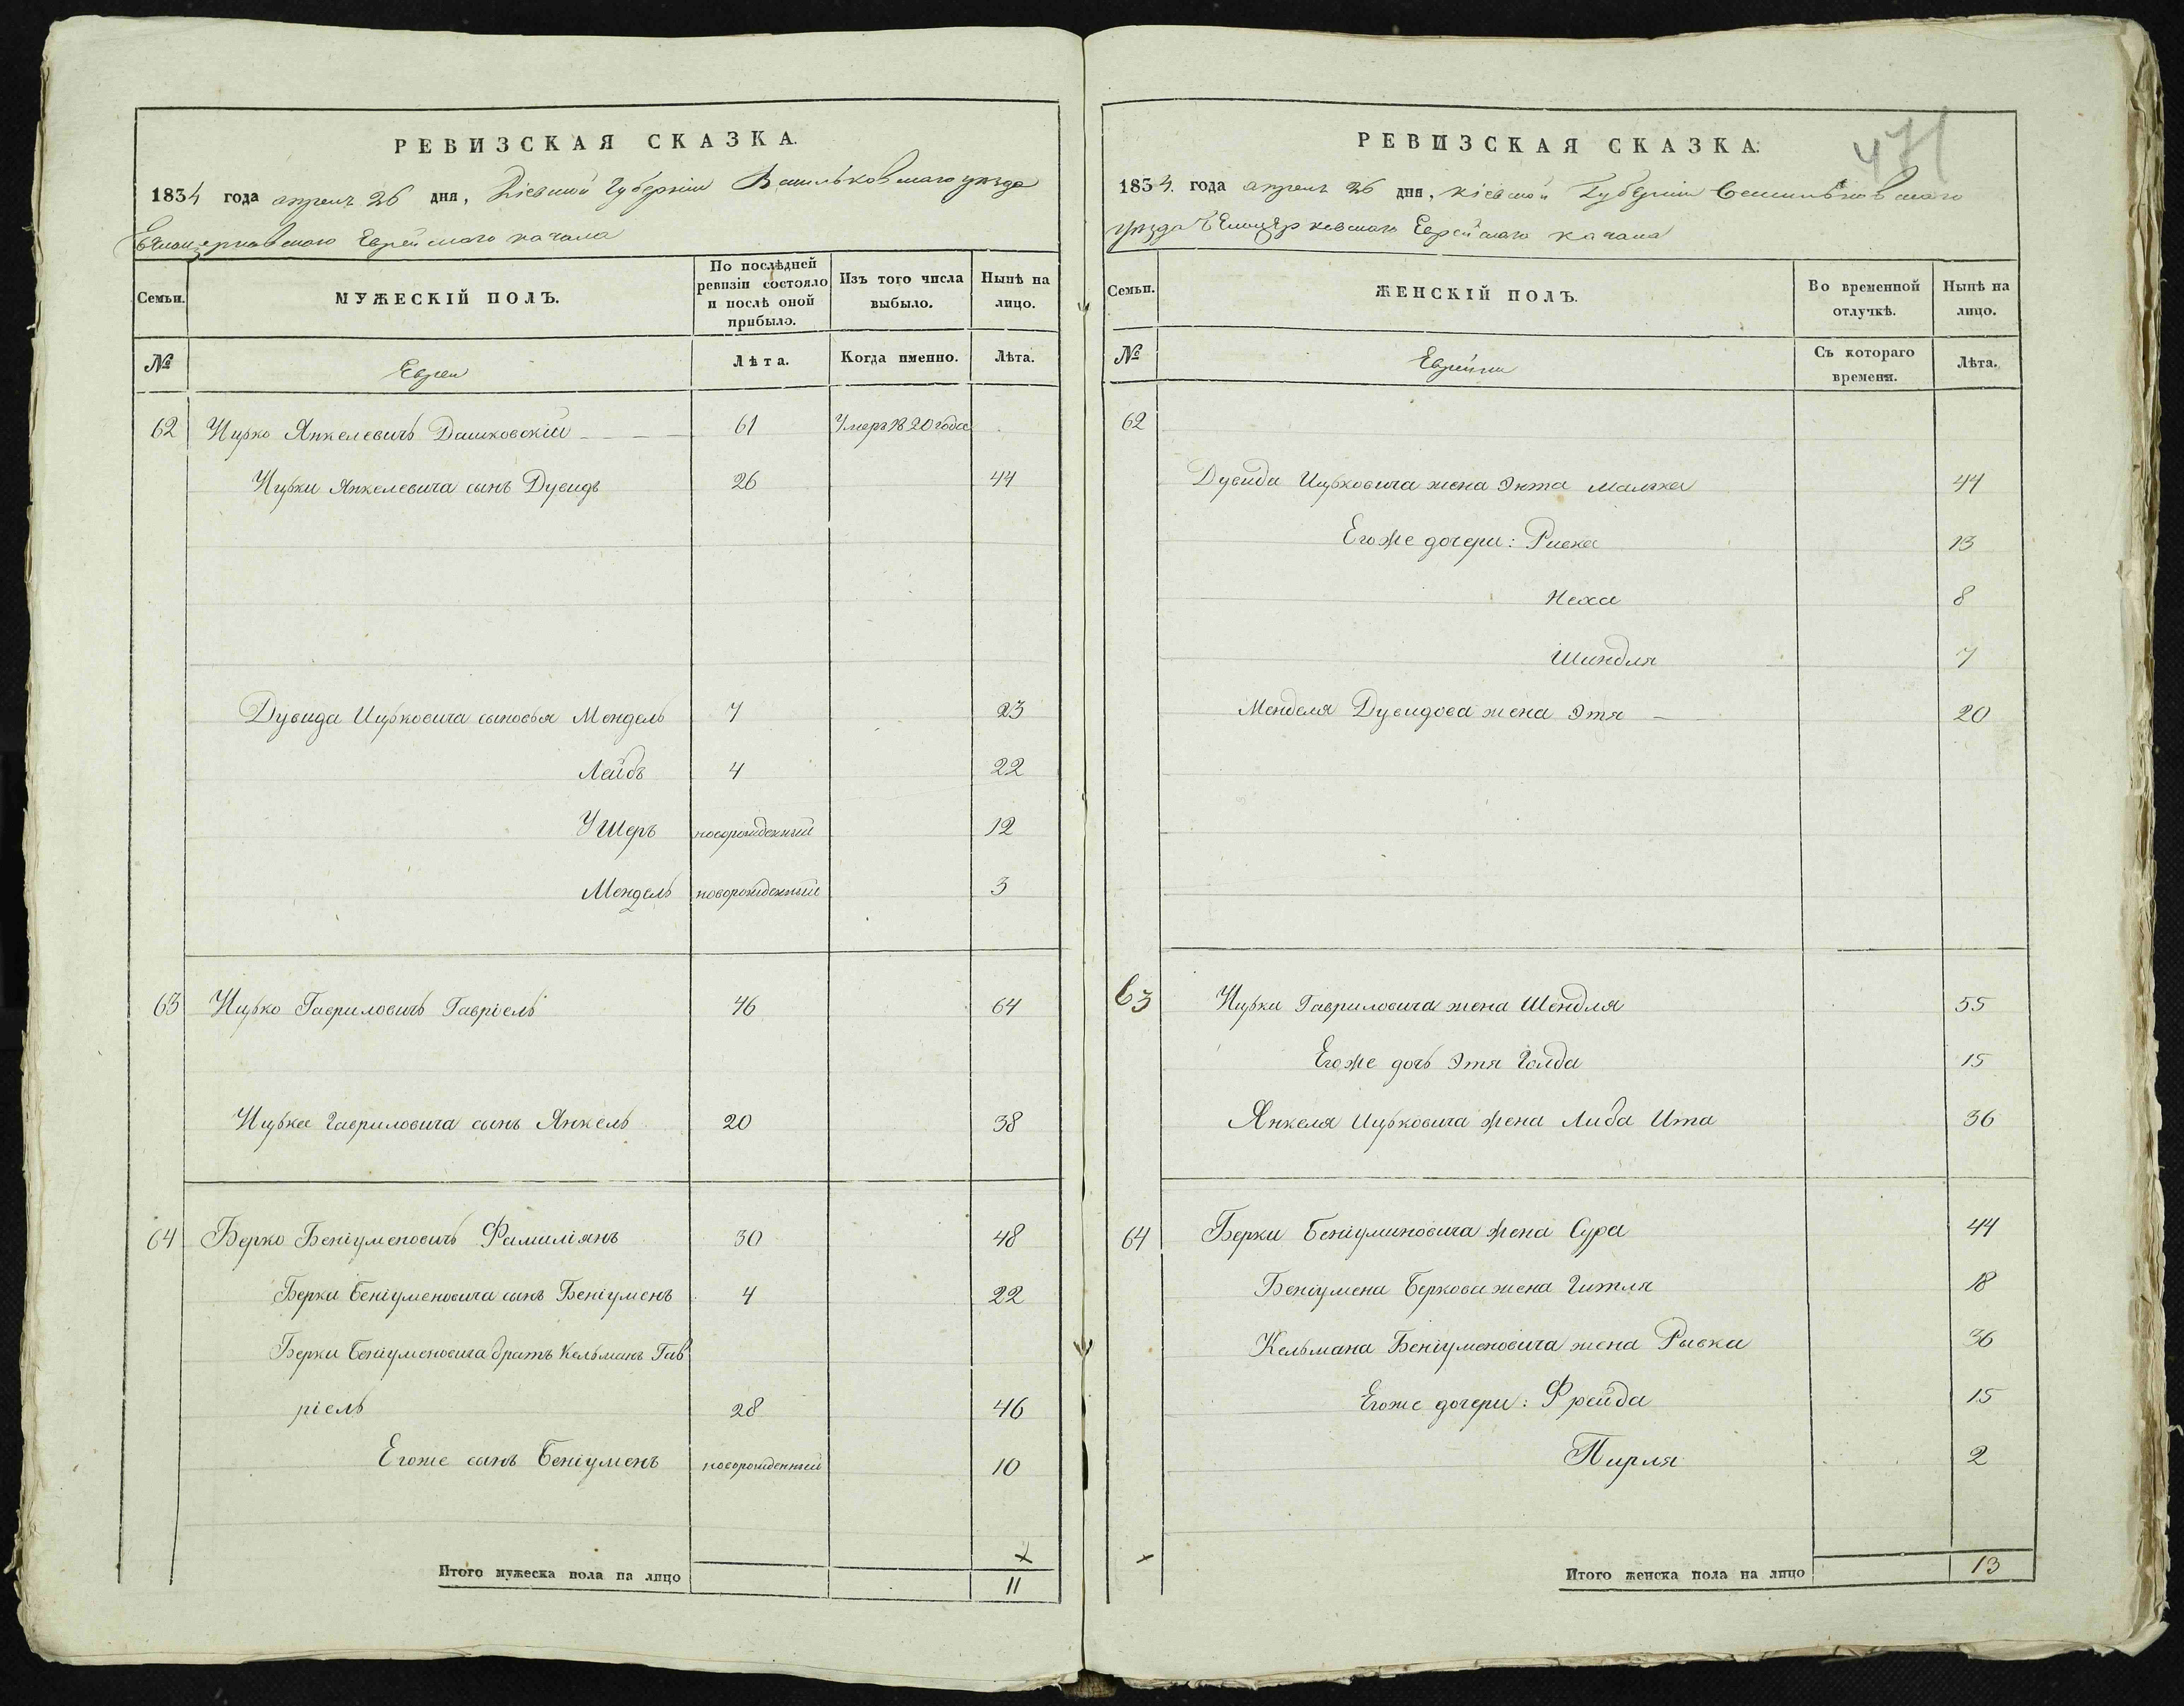 РЕВИЗСКАЯ СКАЗКА.
1834 года апреля 26 дня, Кіевской Губерніи Васильковскаго уѣзда
Бѣлоцерковскаго Еврейскаго кагала
Семьи.
МУЖЕСКІЙ ПОЛЪ.
По послѣдней ревизіи состояло и послѣ оной прибыло.
Изъ того числа выбыло.
Нынѣ на лицо.
№
Евреи
Лѣта.
Когда именно.
Лѣта.
62 Ицко Янкелевичъ Дашковскій 61 Умеръ 1820 года
Ицьки Янкелевича сынъ Дувидъ 26 44
Дувида Ицьковича сыновья Мендель 7 23
Лейбъ 4 22
Ушеръ новорожденный 12
Мендель новорожденный 3
63 Ицько Гавриловичъ Гавріель 46 64
Ицька Гавриловича сынъ Янкель 20 38
64 Берко Беніуменовичъ Фамиліянъ 30 48
Берки Беніуменовича сынъ Беніуменъ 4 22
Берки Беніуменовича братъ Кельманъ Гав
ріель 28 46
Егоже сынъ Беніуменъ новорожденный 10
Итого мужеска пола на лицо 11
471
РЕВИЗСКАЯ СКАЗКА.
1834. года апреля 26 дня, Кіевской Губерніи Васильковскаго
уѣзда Бѣлоцерковскаго Еврейскаго кагала
Семьи.
ЖЕНСКІЙ ПОЛЪ.
Во временной отлучкѣ.
Нынѣ на лицо.
№
Еврейки
Съ котораго времени.
Лѣта.
62
Дувида Ицьковича жена Энта Малка 44
Егоже дочери: Ривка 13
Неха 8
Шиндля 7
Менделя Дувидова жена Этя 20
63 Ицьки Гавриловича жена Шендля 55
Егоже дочь Этя Голда 15
Янкеля Ицьковича жена Либа Ита 36
64 Берки Беніуминовича жена Сура 44
Беніумена Беркова жена Гитля 18
Кельмана Беніуменовича жена Рывка 36
Егоже дочери: Фрейда 15
Пирля 2
Итого женска пола на лицо 13